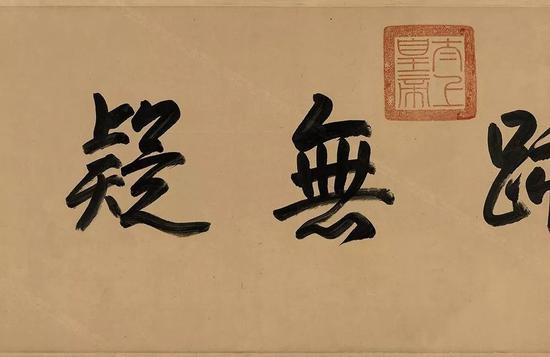 無疑
太上皇帝